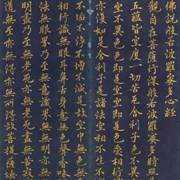 佛說般若波羅蜜多心經
觀自在菩薩行深般若波羅蜜多時照見
五蘊皆空度一切苦厄舍利子色不異空
空不異色色即是空空即是色受想行識
亦復如是舍利子是諸法空相不生不滅
不垢不淨不增不減是故空中無色無受
想行識無眼耳鼻舌身意無色聲香味觸
法無眼界乃至無意識界無無明亦無無
明盡乃至無老死亦無老死盡無苦集滅
道無智亦無得以無所得故菩提薩埵